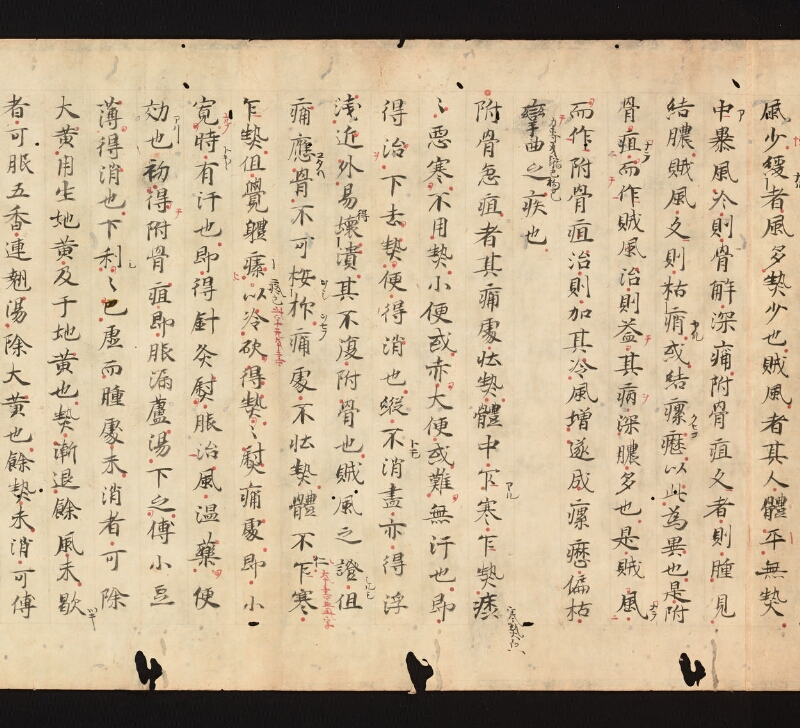 風少緩者風多𤍠少也賊風者其人體平無𤍠
中暴風冷則骨解深痛附骨疽久者則腫見
結膿賊風久則枯痟或結瘰癧以此為異也是附
骨疽而作賊風治則益其病深膿多也是賊風
而作附骨疽治則加其冷風增遂成瘰癧偏枯
攣曲之疾也
附骨急疽者其痛處怯𤍠體中乍寒乍𤍠
〻惡寒不用𤍠小便或赤大便或難無汗也即
得治下去𤍠便得消也縱不消盡亦得浮
淺近外易壞潰其不復附骨也賊風之證但
痛應骨不可桉柞痛處不怯𤍠體不乍寒
乍𤍠但覺體瘰以冷欲得𤍠〻熨痛處即小
寛時有汗也即得針灸熨服治風温藥便
効也初得附骨疽即服漏蘆湯下之傅小豆
薄得消也下利〻已虛而腫處未消者可除
大黃用生地黃及干地黃也𤍠漸退餘風未歇
者可服五香連翹湯除大黃也餘𤍠未消可傅